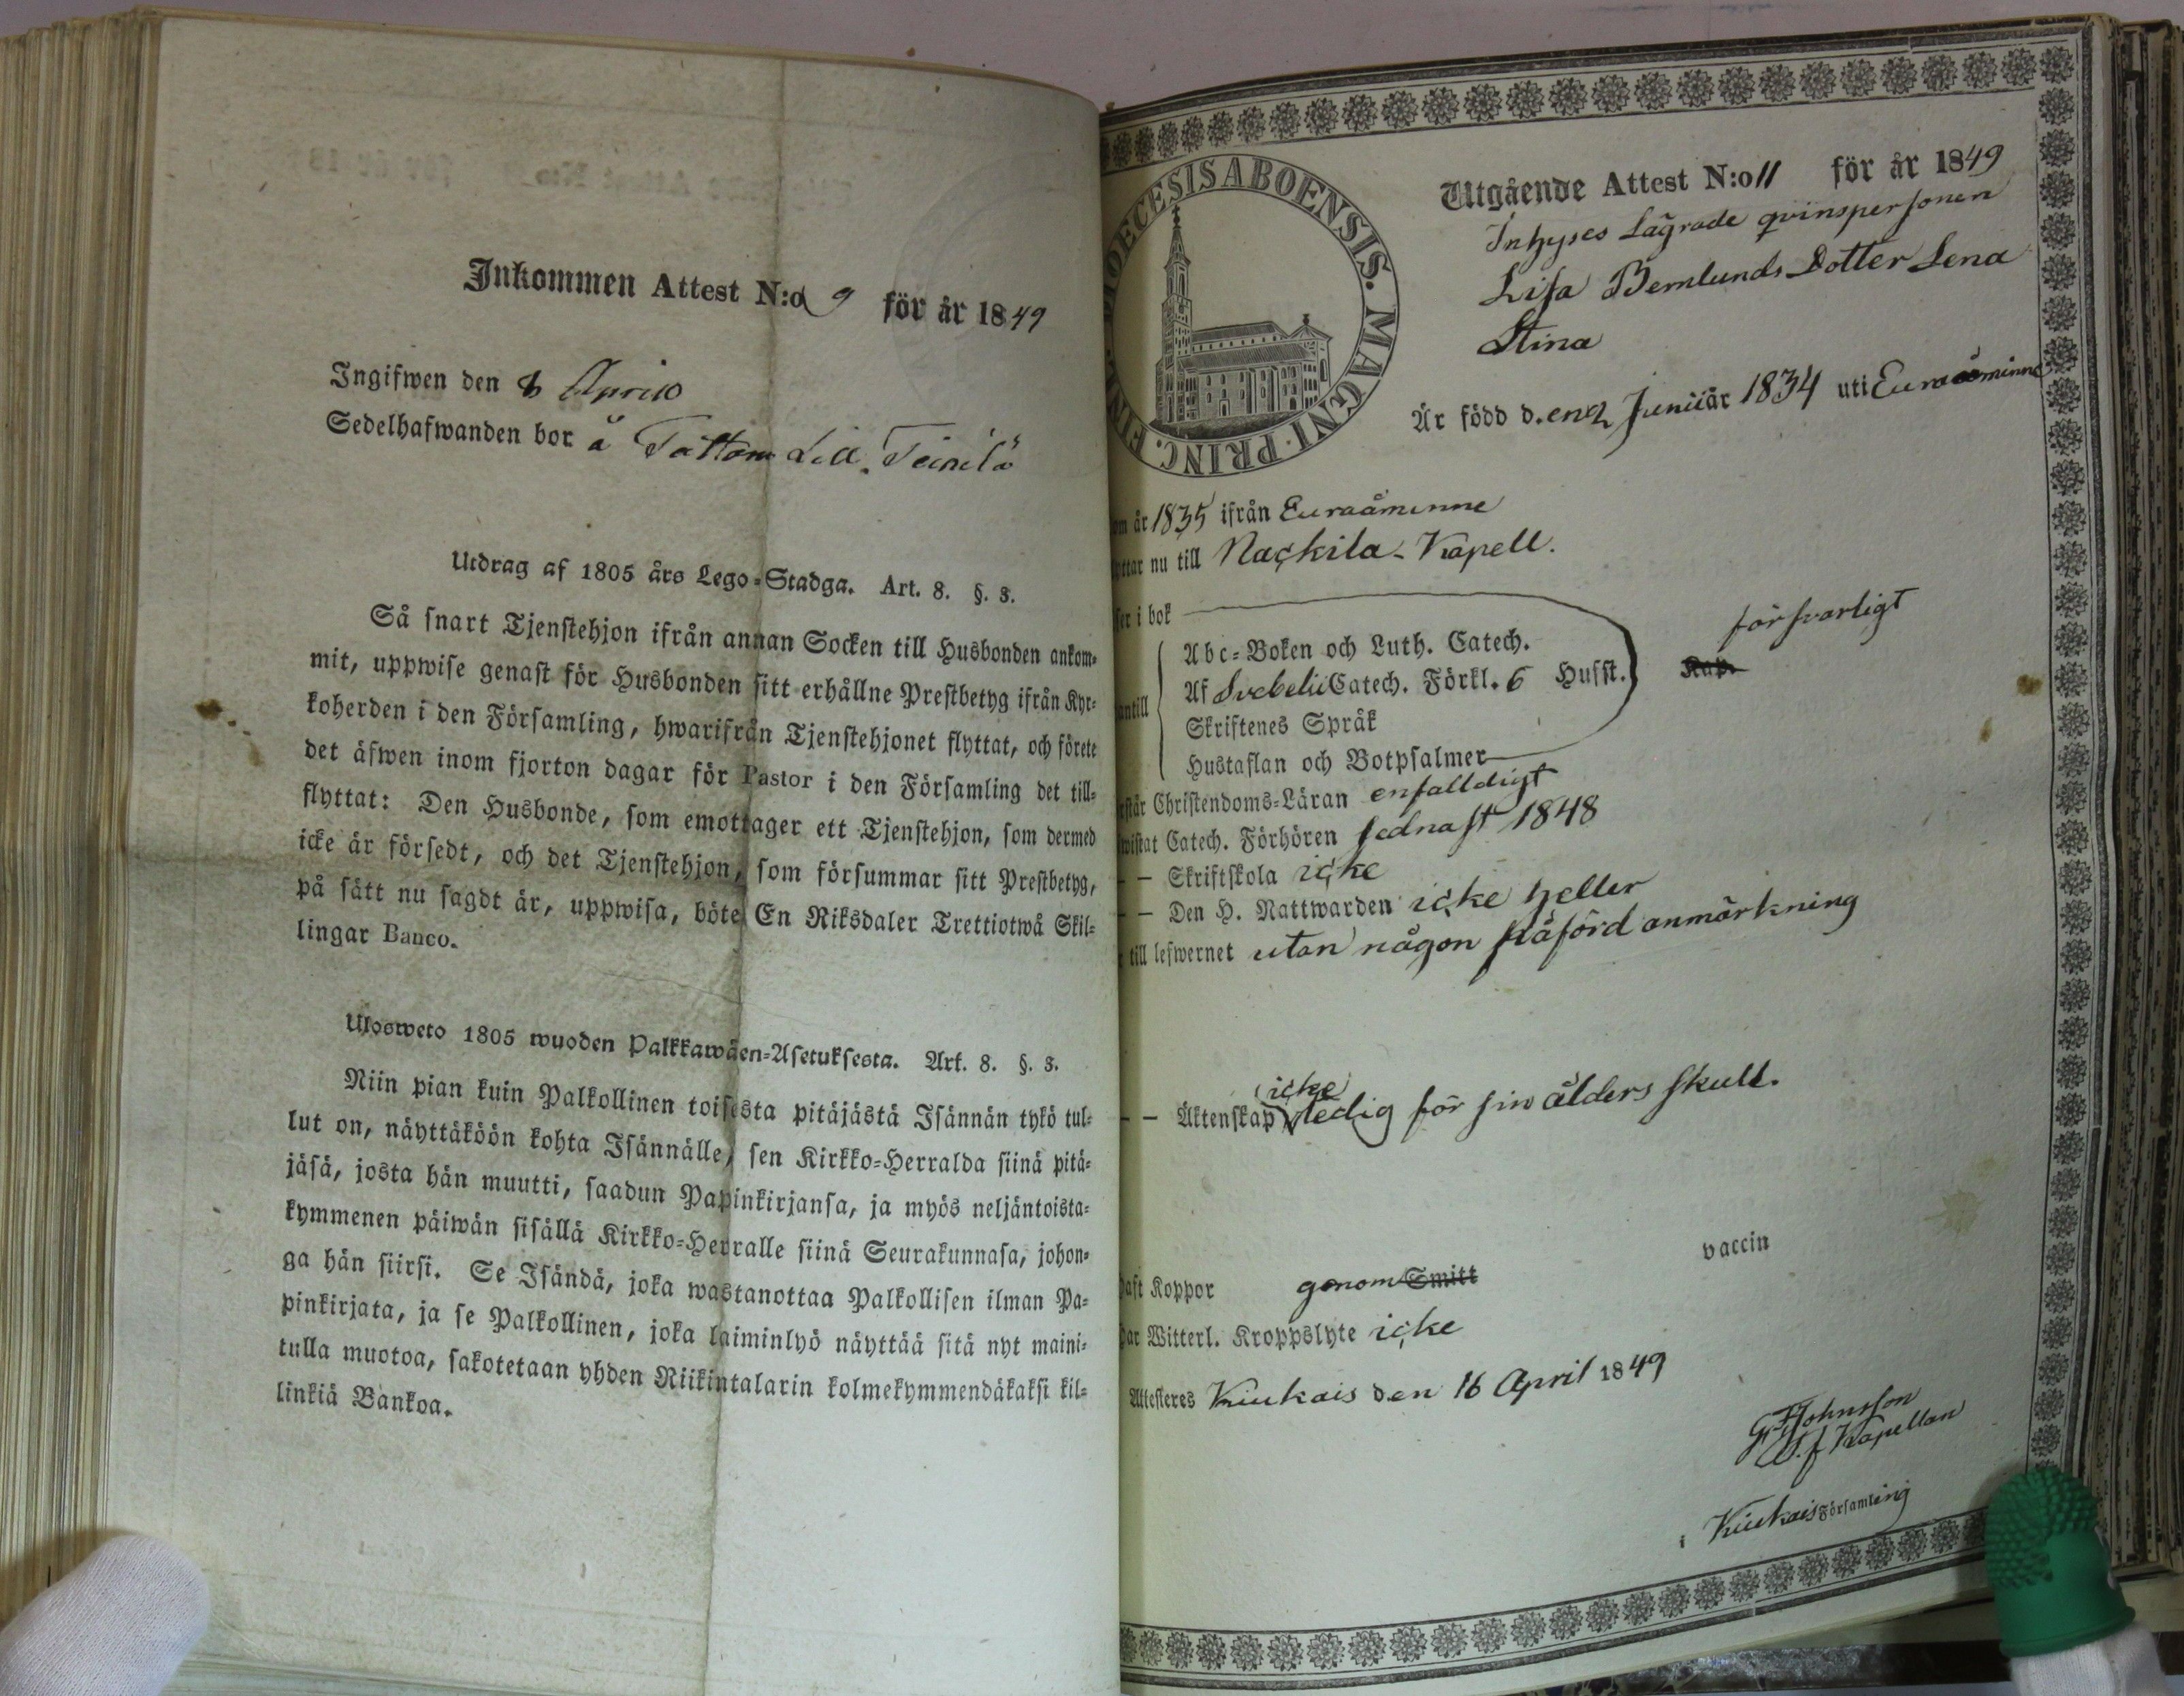 Inkommen Attest N:o 9 för år 1849
Ingifwen den April
Sedelhafwanden bor å Lill Teinilä
Utdrag af 1805 års Lego-Stadga. Art. 8. §. 3.
Så snart Tjenstehjon ifrån annan Socken till Husbonden ankom-
mit, uppwise genast för Husbonden sitt erhållne Prestbetyg ifrån Kyr-
koherden i den Församling, hwarifrån Tjenstehjonet flyttat, och förete
det äfwen inom fjorton dagar för Pastor i den Församling det till-
flyttat: Den Husbonde, som emottager ett Tjenstehjon, som dermed
icke är försedt, och det Tjenstehjon, som försummar sitt Prestbetyg,
på sätt nu sagdt är, uppwisa, böte En Riksdaler Trettiotwå Skil-
lingar Banco.
Ulosweto 1805 wuoden Palkkawäen-Asetuksesta. Art. 8. §. 3.
Niin pian kuin Palkollinen toisesta pitäjästä Isännän tykö tul-
lut on, näyttäköön kohta Isännälle, sen Kirkko-Herralda siinä pitä-
jäsä, josta hän muutti, saadun Papinkirjansa, ja myös neljäntoista-
kymmenen päiwän sisällä Kirkko-Herralle siinä Seurakunnasa, johon-
ga hän siirsi. Se Isändä, joka wastanottaa Palkollisen ilman Pa-
pinkirjata, ja se Palkollinen, joka laiminlyö näyttää sitä nyt maini-
tulla muotoa, sakotetaan yhden Riikintalarin kolmekymmendäkaksi kil-
linkiä Bankoa.
DIOECESIS ABOENSIS. MAGNI PRINC. FINL.
Utgående Attest N:o 11 för år 1849
Inhyses Lägrade qvinspersonen
Lisa Bernlunds Dotter Lena
Stina
Är född d. en 2 Junii år 1834 uti Euraåminne
om år 1835 ifrån Euraåminne
ttar nu till Nackila Kapell.
ser i bok
Abc-Boken och Luth. Catech.
försvarligt
antill Af Svebelii Catech. Förkl. 6 Husst.
Skriftenes Språk
Hustaflan och Botpsalmer
rstår Christendoms-Läran enfalldigt
wistat Catech. Förhören sednast 1848
- - Skriftskola icke
- - Den H. Nattwarden icke heller
till lefwernet utan någon påförd anmärkning
icke
- - Äktenskap ledig för sin ålders skull.
haft Koppor genom Smitt vaccin
har Witterl. Kroppslyte icke
Attesteres Kiukais den 16 April 1849
Johnsson
V. f Kapellan
i Kiukais Församling